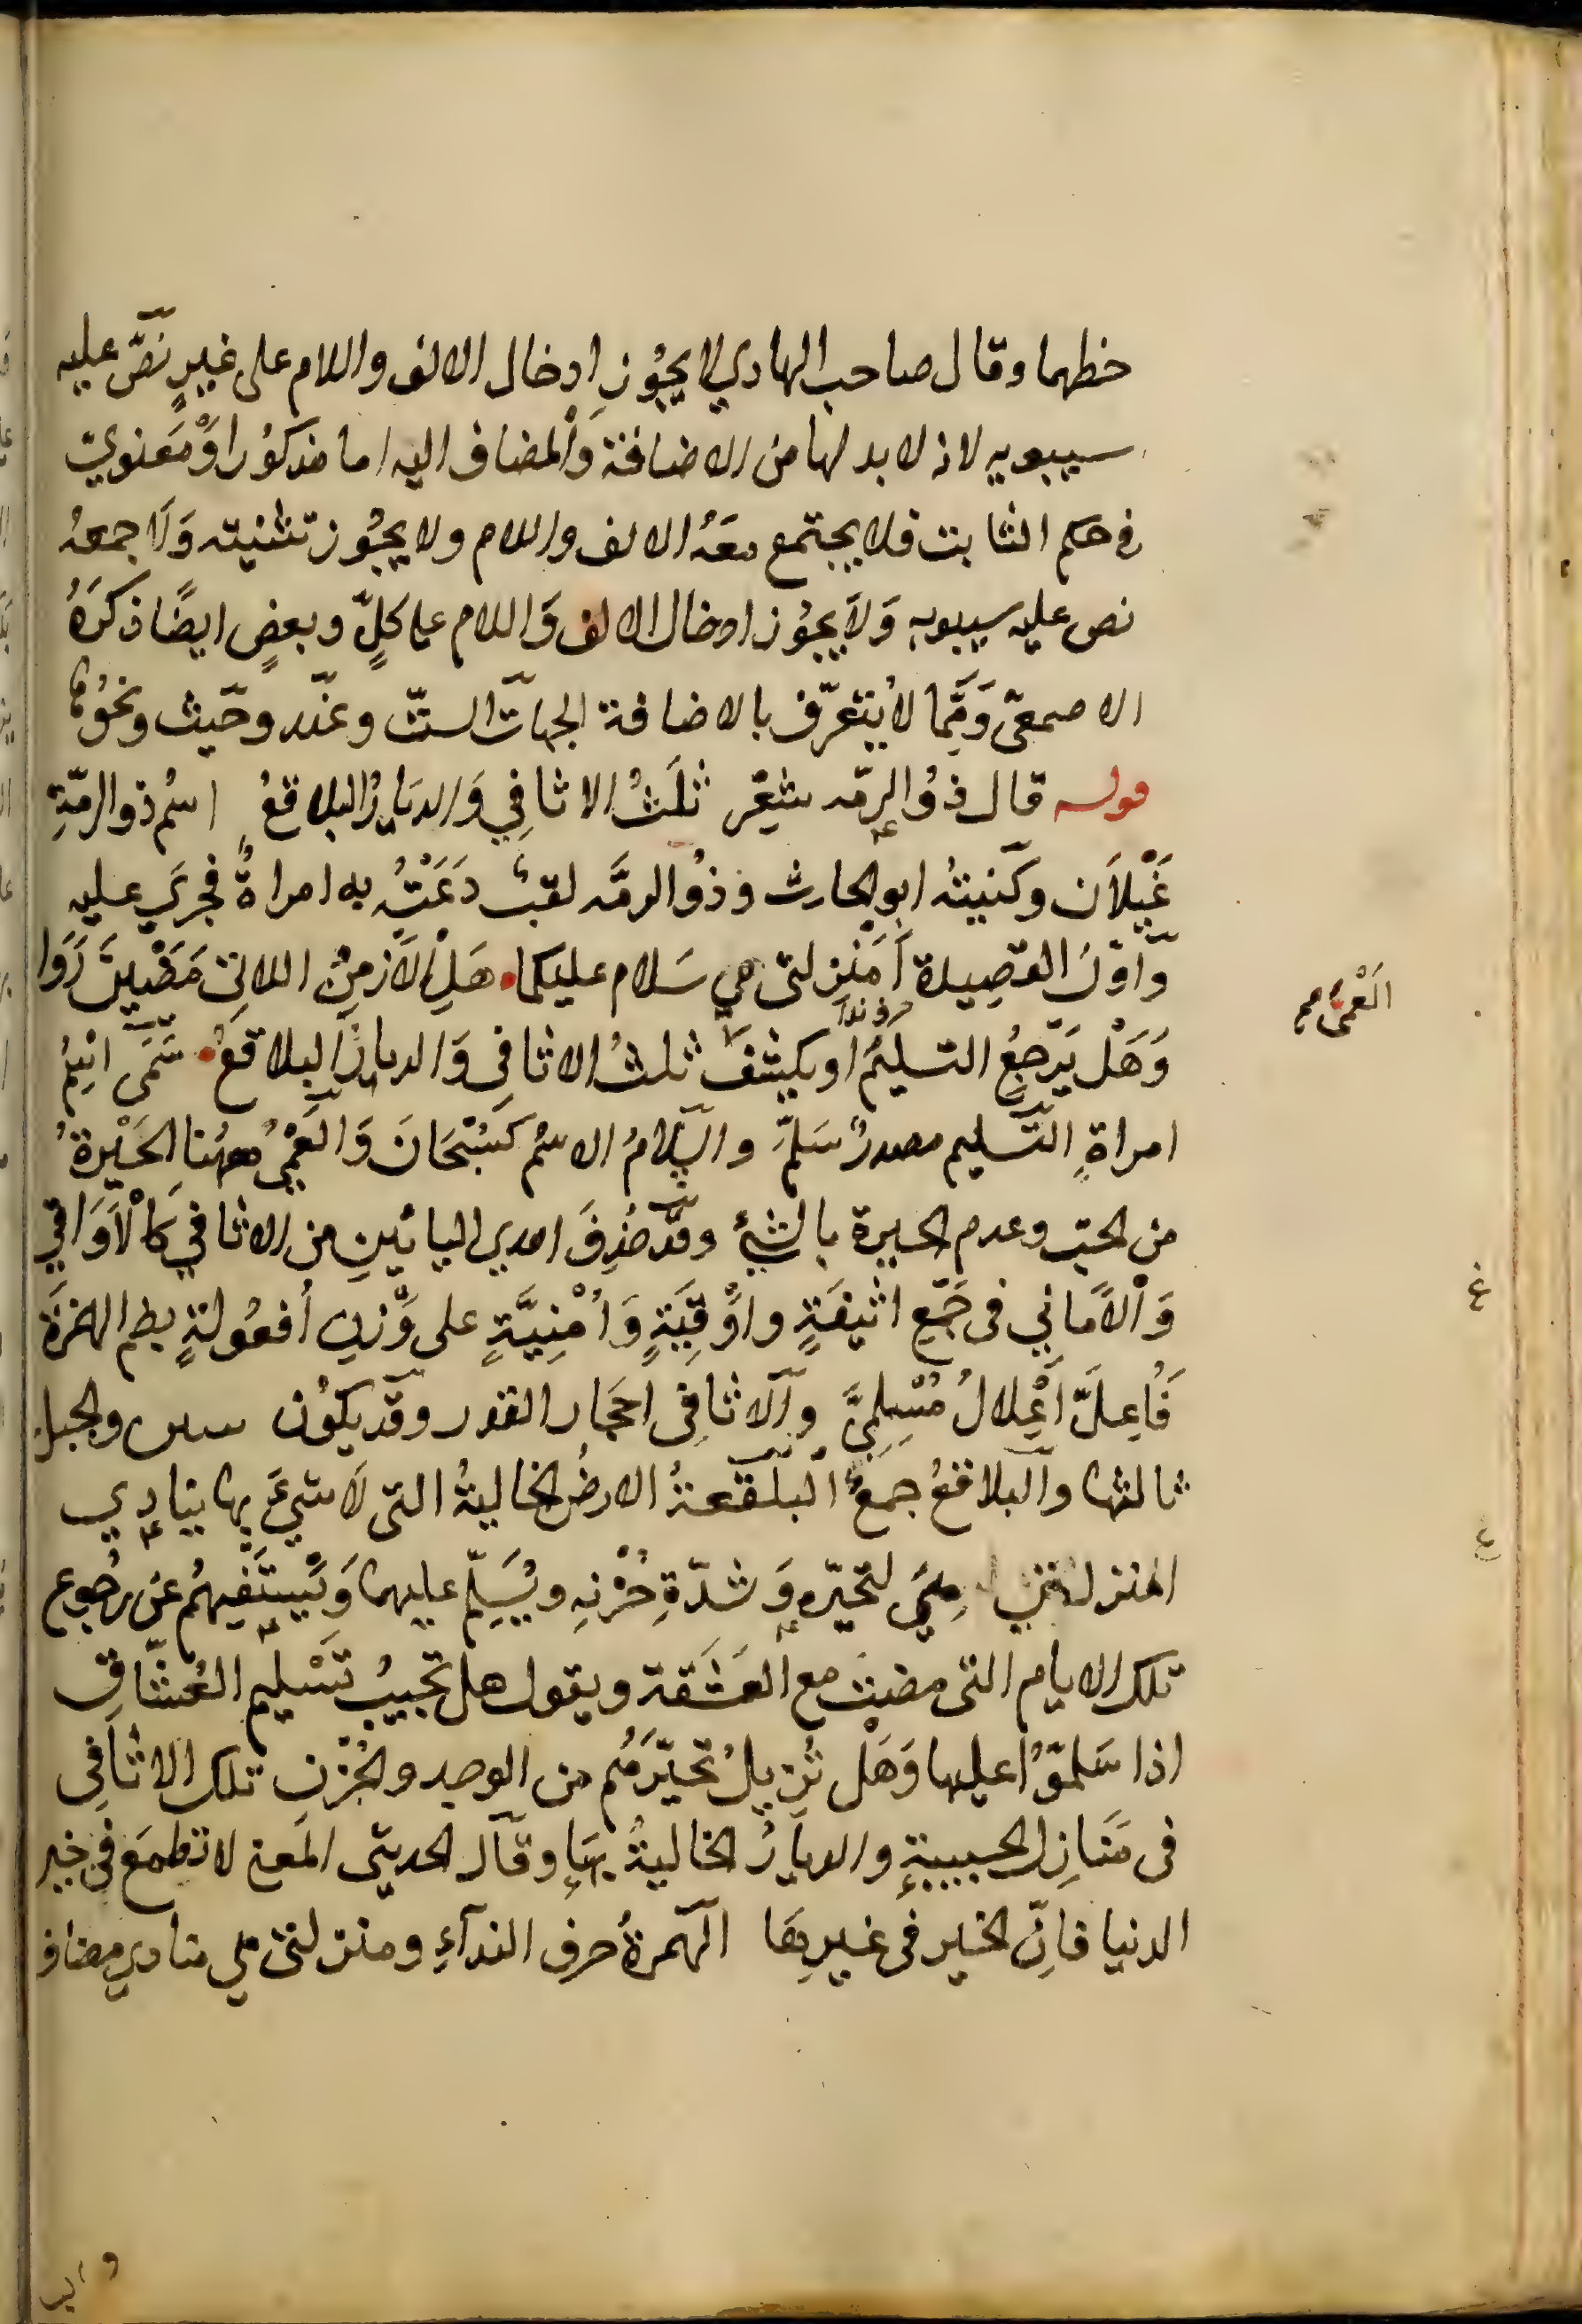 خطهما وقال صاحب الهادي لا يجُوز ادخال الالف واللام على غيرٍ نَصَّ عليه
سيبويه لانه لا بد لها من الاضافة وَالمضاف اليه اما مذكوُرا اوْ مَعنويّ
فى حكم الثابت فلا يجتمع معَهُ الالف واللام ولا يجُوز تثنيته وَلا جمعهُ
نص عليه سيبويه وَلا يجوُز ادخال الالف وَاللام على كلٍّ وبعضٍ ايضًا ذكرَهُ
الاصمعىّ وَممَّا لا يتعرّف بالاضافة الجهات الستّ وعنْد وحَيث ونحوُها
قوله قال ذوُ الرمّه شعْر ثلَثُ الاثافِي وَالديَارُ البلاقعُ اسمُ ذو الرمّةِ
غَيْلاَن وكنيتهُ ابو الحارث وذوُ الرمَّه لقبٌ دَعَتْهُ به امراةٌ فجرَي عليه
وَاوّلُ القصِيدة أَمَنْزِلتى مي سَلام عليكما هَلِ الْاَزمنُ اللاتِى مَضَيْنَ رَوَا
وَهَلْ يَرْجعُ التسليمُ او يكشفُ ثلثُ الاثافِى وَالديارُ البلاقعُ مَىّ اسْمُ
امراةٍ التّسليم مصدرُ سَلمَّ والسَّلامُ الاسْمُ كسُبْحَانَ وَالعَمْيُ ههُنا الحَيْرةُ
من الحبّ وعدم الحيرة بالشئ وقدْ حُذِفَ احدي اليائينِ من الاثافي كالْاَوَاقي
وَالْاَمَانِي فى جَمْعِ اثفيَةٍ واوْقِيَةٍ وَاُمْنِيَّةٍ على وَزْنِ اُفعُولةٍ بضم الهمزَة
فَاُعِلَّ اعْلالُ مُسْلِمِيَّ والاثافِى احجار القدر وقد يكوُن والجبل
ثالثها والبلاقعُ جمعُ البلقعةُ الارضُ الخاليةُ التى لا شيءَ بها ينادِي
المنزلتىِ مَيّ لتحيّرهِ وَشدّةِ حُزْنهِ ويُسَلِّم عليهما وَيَسْتفهِمُ عن رجُوع
تلك الايام التى مضت مع العَشَقة ويقول هل تجيبُ تسْليم العُشّاقِ
اذا سَلمّوُا عليها وَهَلْ تُزيلُ تحيّرَهُم من الوجد والحُزْنِ تلك الاثافِى
فى مَنازِل الحبيبةِ والديارُ الخاليةُ بهَا وقال الحديثى المَعنى لا تطمعَ فى خير
الدنيا فاِنّ الخير فى غيرِهَا الهمزةُ حرف الندآءِ ومنزلتى مي منادي مضاف
اَلْعَمْىَ